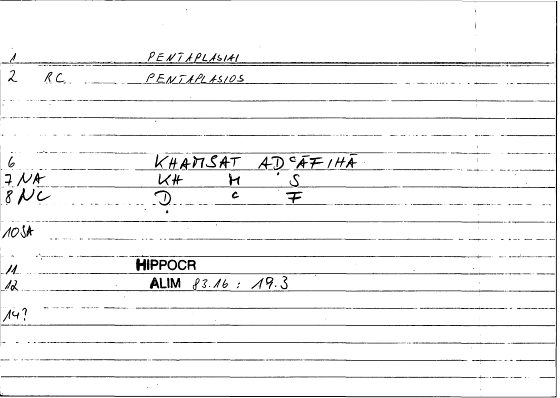 1 PENTAPLASIAI
2 RC PENTAPLASIOS
6 KHAMSAT AḌʿĀFIHĀ
7 NA KH M S
8 NC Ḍ ʿ F
10 SA
11 HIPPOCR
12 ALIM 83.16 : 19.3
14?